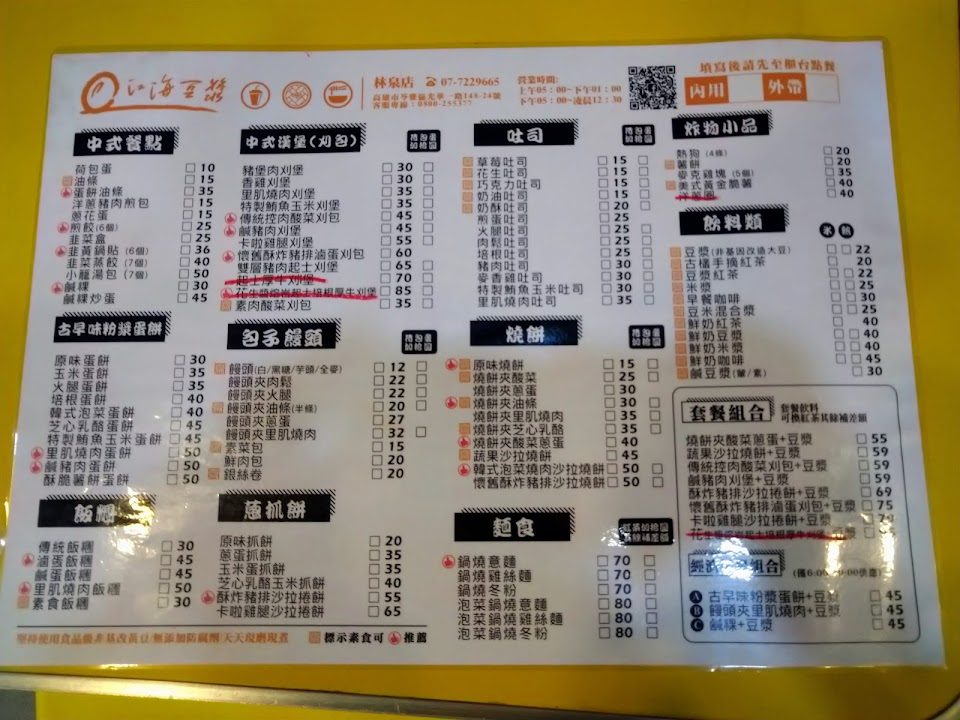 江海豆漿
林泉店 ☎ 07-7229665
高雄市苓雅區光華一路148-24號
客服專線：0800-255377
營業時間：
上午05：00~下午01：00
下午05：00~凌晨12：30
填寫後請先至櫃台點餐
內用 外帶
中式餐點
荷包蛋 10
油條 15
蛋餅油條 35
洋蔥豬肉煎包 15
蔥花蛋 15
煎餃(6個) 25
韭菜盒 25
韭黃鍋貼(6個) 36
韭菜蒸餃(7個) 40
小籠湯包(7個) 50
鹹粿 30
鹹粿炒蛋 45
古早味粉漿蛋餅
原味蛋餅 30
玉米蛋餅 35
火腿蛋餅 35
培根蛋餅 40
韓式泡菜蛋餅 40
芝心乳酪蛋餅 45
特製鮪魚玉米蛋餅 45
里肌燒肉蛋餅 50
鹹豬肉蛋餅 50
酥脆薯餅蛋餅 50
飯糰
傳統飯糰 30
滷蛋飯糰 45
鹹蛋飯糰 45
里肌燒肉飯糰 50
素食飯糰 30
中式漢堡(刈包)
豬堡肉刈堡 30
香雞刈堡 30
里肌燒肉刈堡 35
特製鮪魚玉米刈堡 35
傳統控肉酸菜刈包 45
鹹豬肉刈堡 45
卡啦雞腿刈堡 55
懷舊酥炸豬排滷蛋刈包 60
雙層豬肉起士刈堡 65
起士厚牛刈堡 70
花生醬熔岩起士培根厚牛刈堡 85
素肉酸菜刈包 35
包子饅頭
饅頭(白/黑糖/芋頭/全麥) 12
饅頭夾肉鬆 22
饅頭夾火腿 22
饅頭夾油條(半條) 20
饅頭夾蔥蛋 27
饅頭夾里肌燒肉 32
素菜包 15
鮮肉包 20
銀絲卷 20
蔥抓餅
原味抓餅 20
蔥蛋抓餅 35
玉米蛋抓餅 35
芝心乳酪玉米抓餅 40
酥炸豬排沙拉捲餅 55
卡啦雞腿沙拉捲餅 65
吐司
草莓吐司 15
花生吐司 15
巧克力吐司 15
奶油吐司 15
奶酥吐司 20
煎蛋吐司 25
火腿吐司 25
肉鬆吐司 25
培根吐司 25
豬肉吐司 30
麥香雞吐司 30
特製鮪魚玉米吐司 30
里肌燒肉吐司 35
燒餅
原味燒餅 15
燒餅夾酸菜 25
燒餅夾蔥蛋 30
燒餅夾油條 30
燒餅夾里肌燒肉 35
燒餅夾芝心乳酪 35
燒餅夾酸菜蔥蛋 40
蔬果沙拉燒餅 45
韓式泡菜燒肉沙拉燒餅 50
懷舊酥炸豬排沙拉燒餅 50
麵食
鍋燒意麵 70
鍋燒雞絲麵 70
鍋燒冬粉 70
泡菜鍋燒意麵 80
泡菜鍋燒雞絲麵 80
泡菜鍋燒冬粉 80
炸物小品
熱狗(4條) 20
薯餅 20
麥克雞塊(5個) 35
美式黃金脆薯 40
洋蔥圈 40
飲料類
冰 熱
豆漿(非基因改造大豆) 22
古樸手摘紅茶 20
豆漿紅茶 22
米漿 25
早餐咖啡 30
豆米混合漿 25
鮮奶紅茶 40
鮮奶豆漿 40
鮮奶米漿 40
鮮奶咖啡 45
鹹豆漿(葷/素) 30
套餐組合 套餐飲料
可換紅茶其餘補差額
燒餅夾酸菜蔥蛋+豆漿 55
蔬果沙拉燒餅+豆漿 59
傳統控肉酸菜刈包+豆漿 59
鹹豬肉刈堡+豆漿 59
酥炸豬排沙拉捲餅+豆漿 69
懷舊酥炸豬排滷蛋刈包+豆漿 75
卡啦雞腿沙拉捲餅+豆漿
A 古早味粉漿蛋餅+豆漿 45
B 饅頭夾里肌燒肉+豆漿 45
C 鹹粿+豆漿 45
堅持使用食品級非基改黃豆/無添加防腐劑/天天現磨現煮
標示素食可 推薦